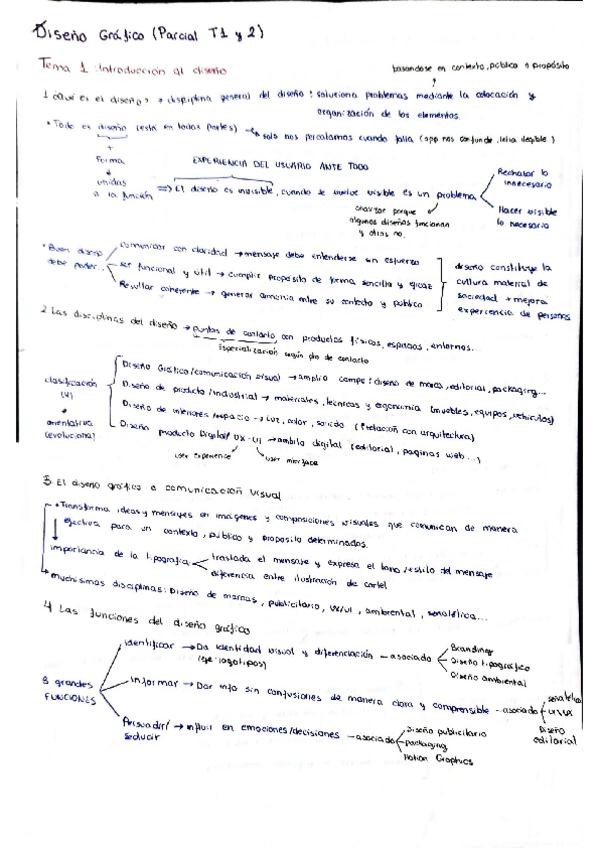 Diseño Gráfico (Parcial T1 y 2)
Tema 1: Introducción al diseño
basandose en contexto, público o propósito
1 ¿Qué es el diseño? → disciplina general del diseño: soluciona problemas mediante la colocación y
organización de los elementos.
• Todo es diseño (está en todas partes) → solo nos percatamos cuando falla (app nos confunde, letra ilegible)
+
Forma
↓
unidas
a la función
EXPERIENCIA DEL USUARIO ANTE TODO
⇒ El diseño es invisible, cuando se vuelve visible es un problema
Rechazar lo
innecesario
Hacer visible
lo necesario
analizar porque
algunos diseños funcionan
y otros no.
• Buen diseño
debe poder..
comunicar con claridad → mensaje debe entenderse sin esfuerzo
ser funcional y util → cumplir propósito de forma sencilla y eficaz
Resultar coherente → generar armonia entre su contexto y público
diseño constituye la
cultura material de
sociedad + mejora
experiencia de personas
2 Las disciplinas del diseño → puntos de contacto con productos físicos, espacios, entornos...
Especialización según pto de contacto
clasificación
(4)
↓
orientativa
(evoluciona)
Diseño Gráfico/comunicación visual → amplio campo: diseño de marcas, editorial, packaging...
Diseño de producto/industrial → materiales, técnicas y ergonomía (muebles, equipos, vehículos)
Diseño de interiores/espacio → luz, color, sonido (Relación con arquitectura)
Diseño producto Digital/UX-UI → ambito digital (editorial, paginas web...)
user experience
user interface
3 El diseño gráfico o comunicación visual
• Transforma ideas y mensajes en imágenes y composiciones visuales que comunican de manera
efectiva para un contexto, público y proposito determinados.
importancia de la tipografía
traslada el mensaje y expresa el tono/estilo del mensaje
diferencia entre ilustración de cartel
muchísimas disciplinas: Diseño de marcas, publicitario, UX/UI, ambiental, señalética...
4 Las funciones del diseño gráfico
3 grandes
FUNCIONES
Identificar → Da identidad visual y diferenciación — asociado
(eje: logotipos)
Branding
Diseño tipografico
Diseño ambiental
Informar → Dar info sin confusiones de manera clara y comprensible - asociado
señaletica
UI/UX
Diseño
editorial
Persuadir/
seducir
→ influir en emociones/decisiones — asociado
Diseño publicitario
packaging
Motion Graphics